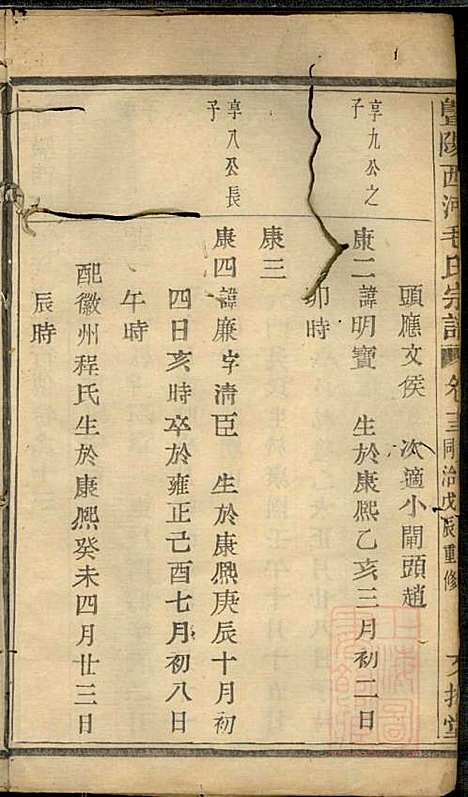 暨陽西河毛氏宗譜 卷三 同治戊辰重修
頭應文侯 次適小閘頭趙
享九公之子
康二諱明寶 生於康熙乙亥三月初二日
卯時
康三
享八公長子
康四諱廉字清臣 生於康熙庚辰十月初
四日亥時卒於雍正己酉七月初八日
午時
配徽州程氏生於康熙癸未四月廿三日
辰時